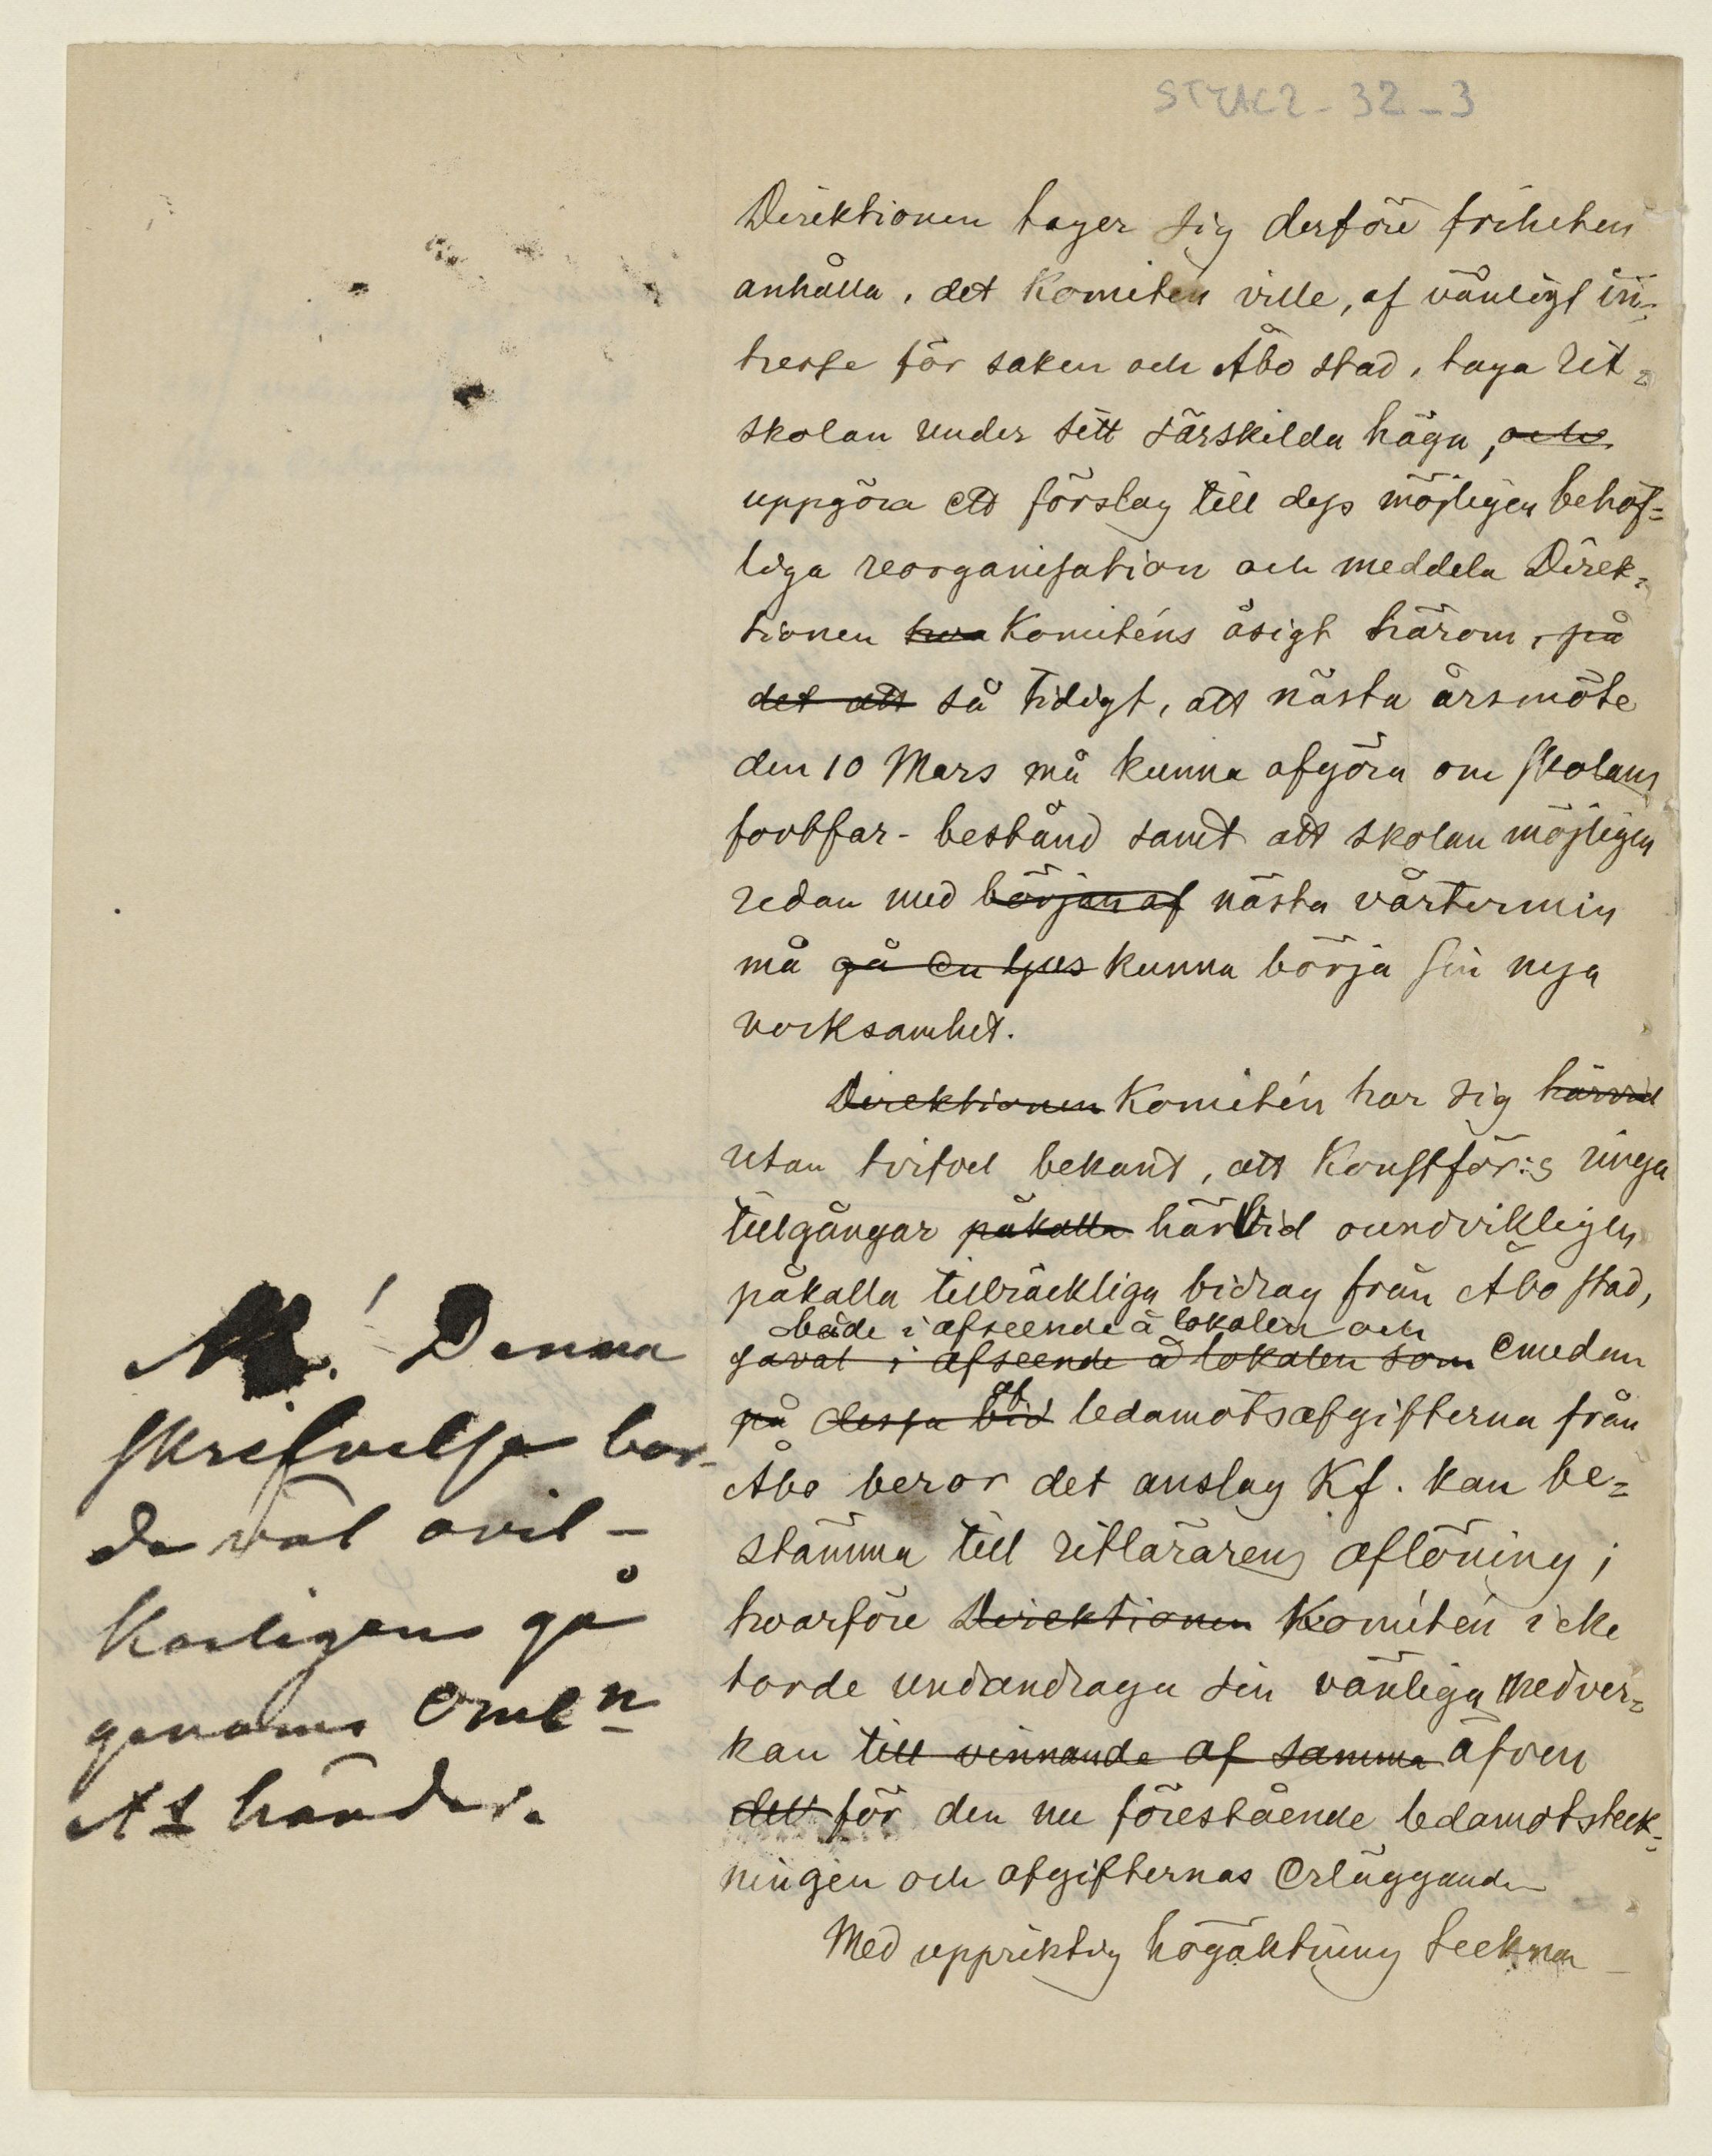 STYAC2-32-3
Direktionen tager sig derföre friheten
anhålla, det Komitén ville, af vänligt in-
tresse för saken och Åbo stad, taga rit=
skolan under sitt särskilda hägn, och
uppgöra ett förslag till dess möjligen behöf=
liga reorganisation och meddela Direk=
tionen hva Komiténs åsigt härom, på
det att så tidigt, att nästa årsmöte
den 10 Mars må kunna afgöra om skolans
fortfar-bestånd samt att skolan möjligen
redan med början af nästa vårtermin
må gå en ljus kunna börja sin nya
verksamhet.
Direktionen Komitén har sig härvid
utan tvifvel bekant, att Konstför:s ringa
tillgångar påkalla härvid oundvikligen
påkalla tillräckliga bidrag från Åbo stad,
både i afseende å lokalen och
såväl i afseende å lokalen som emedan
på dessa bid af ledamotsafgifterna från
Åbo beror det anslag Kf. kan be=
stämma till ritlärarens aflöning;
hvarföre Direktionen Komitén icke
torde undandraga sin vänliga medver=
kan till vinnande af samma äfven
det för den nu förestående ledamotsteck=
ningen och afgifternas erläggande
Med uppriktig högaktning teckna
Denna
skrifvelse bor-
de väl ovil-
korligen gå
genom
händer.